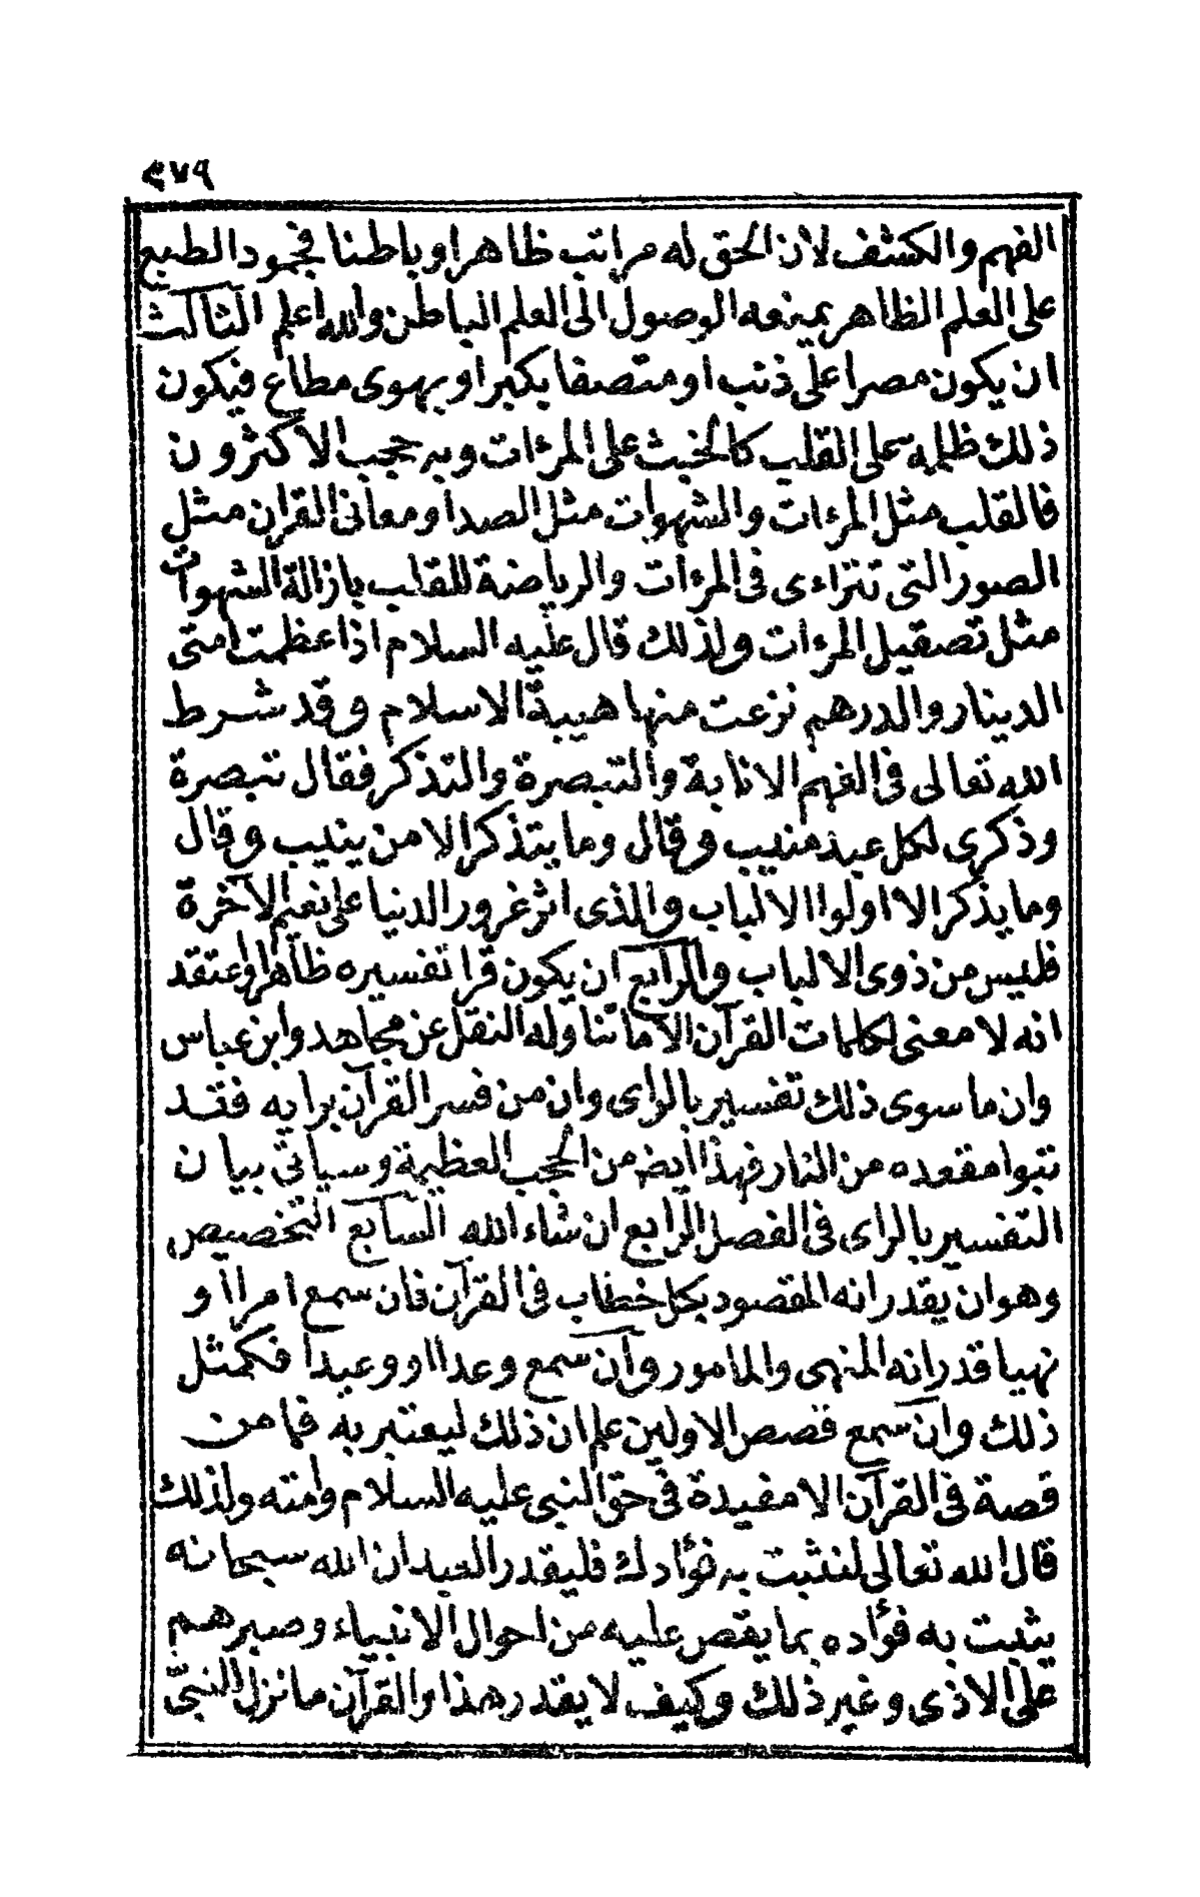 ٤٧٩
الفهم والكشف لان الحق له مراتب ظاهرا وباطنا فجمود الطبع
على العلم الظاهر يمنعه الوصول الى العلم الباطن والله اعلم الثالث
ان يكون مصرا على ذنب او متصفا بكبر او بهوى مطاع فيكون
ذلك ظلمة على القلب كالخبث على المرءات وبه حجب الاكثرون
فالقلب مثل المرءات والشهوات مثل الصدأ ومعانى القران مثل
الصور التى تتراءى فى المرءات والرياضة للقلب بازالة الشهوات
مثل تصقيل المرءات ولذلك قال عليه السلام اذا عظمت امتى
الدينار والدرهم نزعت منها هيبة الاسلام وقد شرط
الله تعالى فى الفهم الانابة والتبصرة والتذكر فقال تبصرة
وذكرى لكل عبد منيب وقال وما يتذكر الا من ينيب وقال
وما يذكر الا اولوا الالباب والذى اثر غرور الدنيا على نعيم الآخرة
فليس من ذوى الالباب والرابع ان يكون قرا تفسيره ظاهرا واعتقد
انه لا معنى لكلمات القرآن الا ما تناوله النقل عن مجاهد وابن عباس
وان ما سوى ذلك تفسير بالراى وان من فسر القرآن برايه فقد
تبوا مقعده من النار فهذا ايضا من الحجب العظيمة وسياتى بيان
التفسير بالراى فى الفصل الرابع ان شاء الله السابع التخصيص
وهو ان يقدر انه المقصود بكل خطاب فى القرآن فان سمع امرا او
نهيا قدر انه المنهى والمامور وان سمع وعدا او وعيدا فكمثل
ذلك وان سمع قصص الاولين علم ان ذلك ليعتبر به فما من
قصة فى القرآن الا مفيدة فى حق النبى عليه السلام وامته ولذلك
قال الله تعالى لنثبت به فؤادك فليقدر العبد ان الله سبحانه
يثبت به فؤاده بما يقص عليه من احوال الانبياء وصبرهم
على الاذى وغير ذلك وكيف لا يقدر هذا والقرآن ما نزل النبىّ